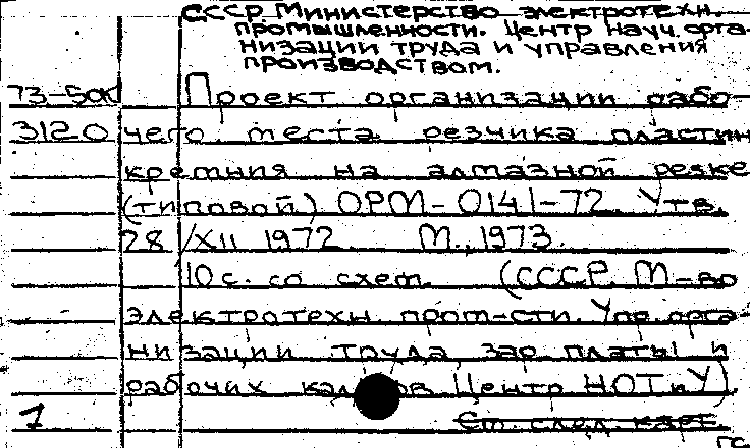 СССР Министерство электротехн.
промышленности. Центр науч. орга-
низации труда и управления
производством.
73-50к Проект организации рабо-
3120 чего места резчика пластин
кремния на алмазной резке
(типовой) ОРМ-0141-72 Утв.
28/XII 1972 М., 1973.
10 с. со схем. (СССР. М-во
электротехн. пром-сти. Упр. орга-
низации труда, зар. платы и
рабочих Центр НОТ и У).
1 См. след. карт.